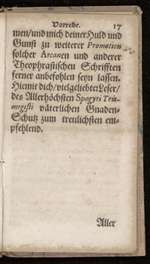 Vorrede. 17
men/und mich deiner Huld und
Gunst zu weiterer Promotion
solcher Arcanen und anderer
Theophrastischen Schrifften
ferner anbefohlen seyn lassen.
Hiemit dich/vielgeliebter Leser/
des Allerhöchsten Spagyri Tris-
megisti väterlichen Gnaden-
Schutz zum treulichsten em-
pfehlend.
Aller